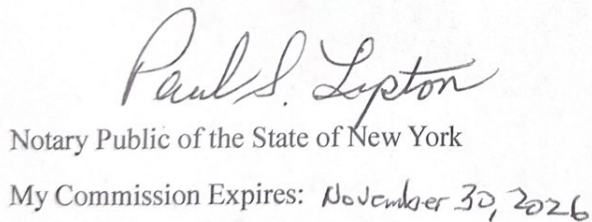 Paul S. Lipton
Notary Public of the State of New York
My Commission Expires: November 30, 2026